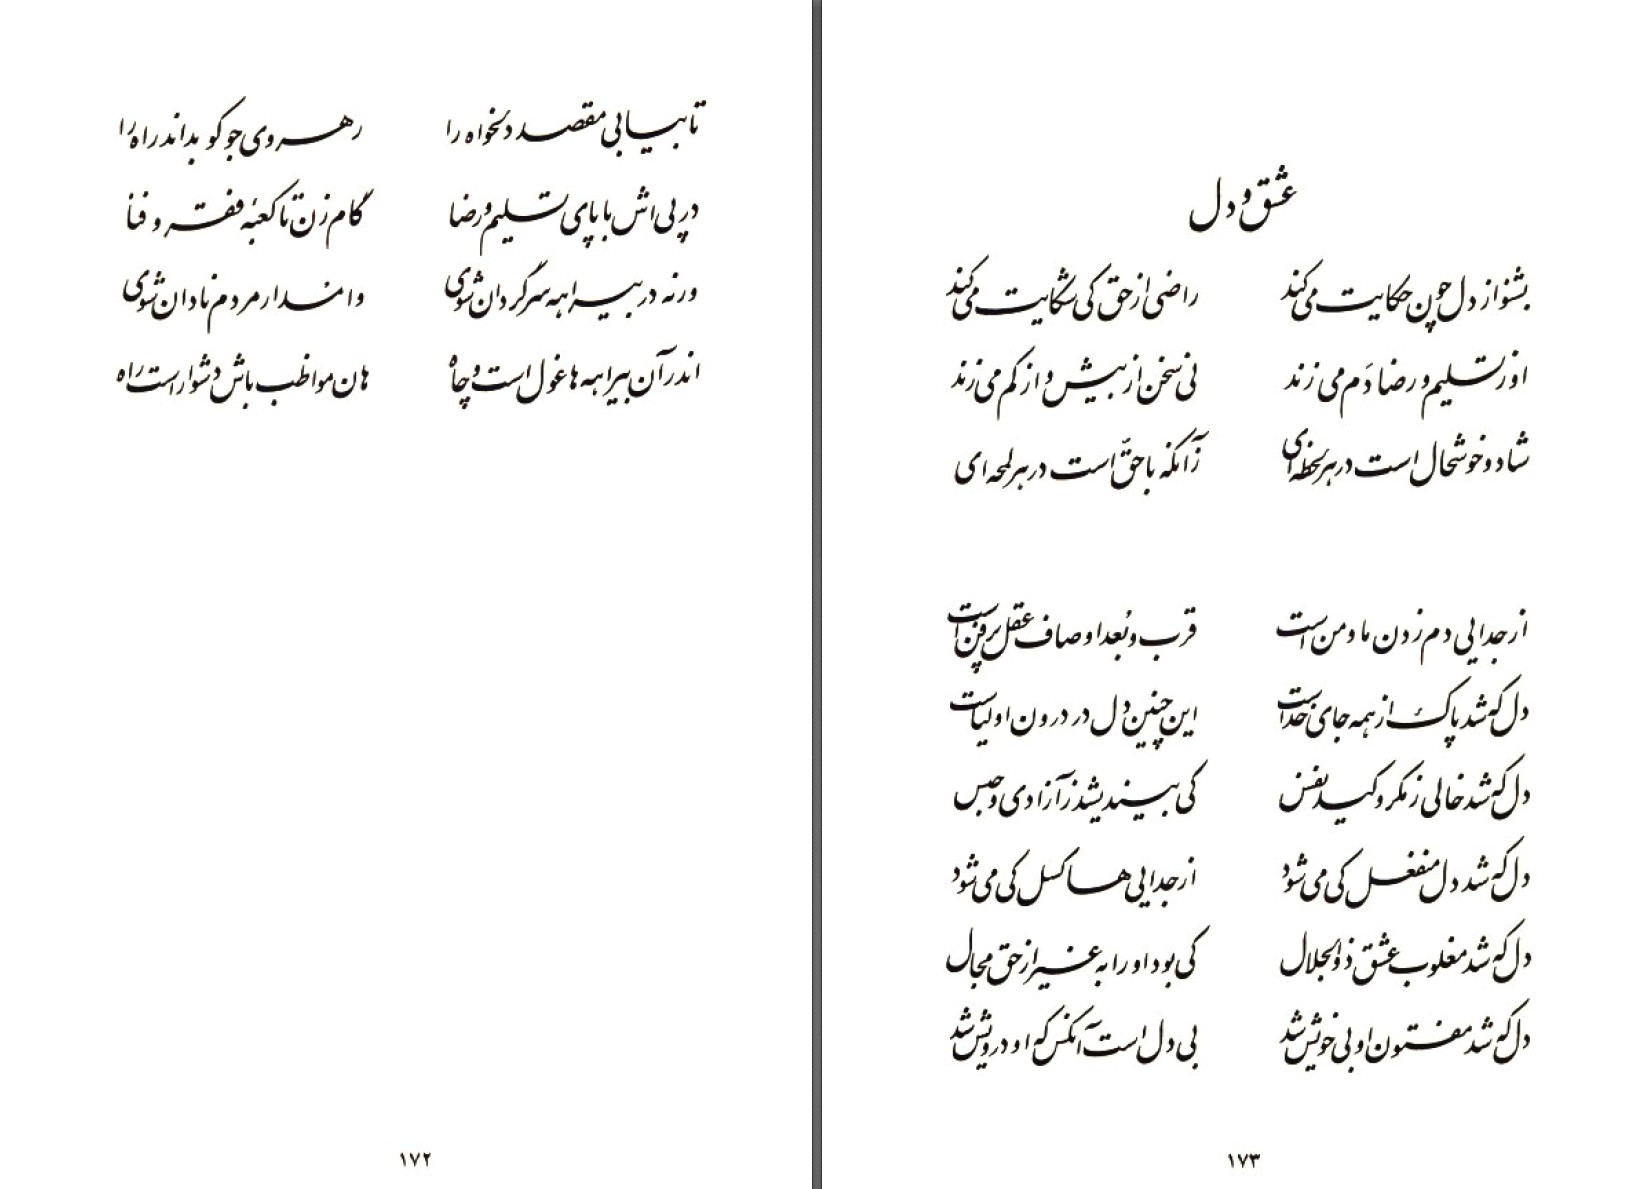 تا بیابی مقصد دلخواه را    رهروی جو کو بداند راه را
در پی‌اش با پای تسلیم و رضا    گام زن تا کعبهٔ فقر و فنا
ورنه در بیراهه سرگردان شوی    وامدار مردم نادان شوی
اندر آن بیراهه ها غول است و چاه    هان مواظب باش دشوار است راه
۱۷۲
عشق و دل
بشنو از دل چون حکایت می‌کند    راضی از حق کی شکایت می‌کند
او ز تسلیم و رضا دَم می زند    نی سخن از بیش و از کم می زند
شاد و خوشحال است در هر لحظه‌ای    زآنکه با حقّ است در هر لمحه ای
از جدایی دم زدن ما و من است    قرب و بُعد اوصاف عقل پر فن است
دل که شد پاک از همه جای خداست    این چنین دل در درون اولیاست
دل که شد خالی ز مکر و کید نفس    کی بیندیشد ز آزادی و حبس
دل که شد دل منفعل کی می شود    از جدایی ها کسل کی می شود
دل که شد مغلوب عشق ذوالجلال    کی بود او را به غیر از حق مجال
دل که شد مفتون او بی خویش شد    بی دل است آنکس که او درویش شد
۱۷۳